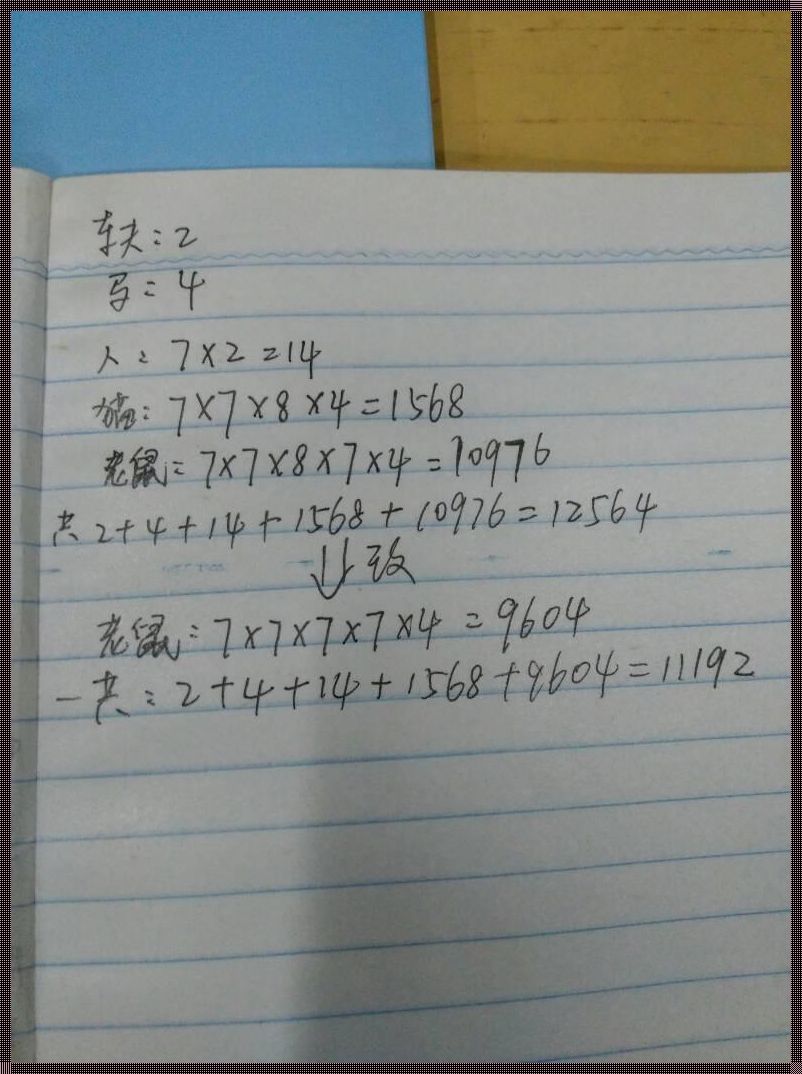 车夫:2
马:4
人:7×2=14
猫:7×7×8×4=1568
老鼠:7×7×8×7×4=10976
共 2+4+14+1568+10976=12564
改
老鼠:7×7×7×7×4=9604
一共:2+4+14+1568+9604=11192